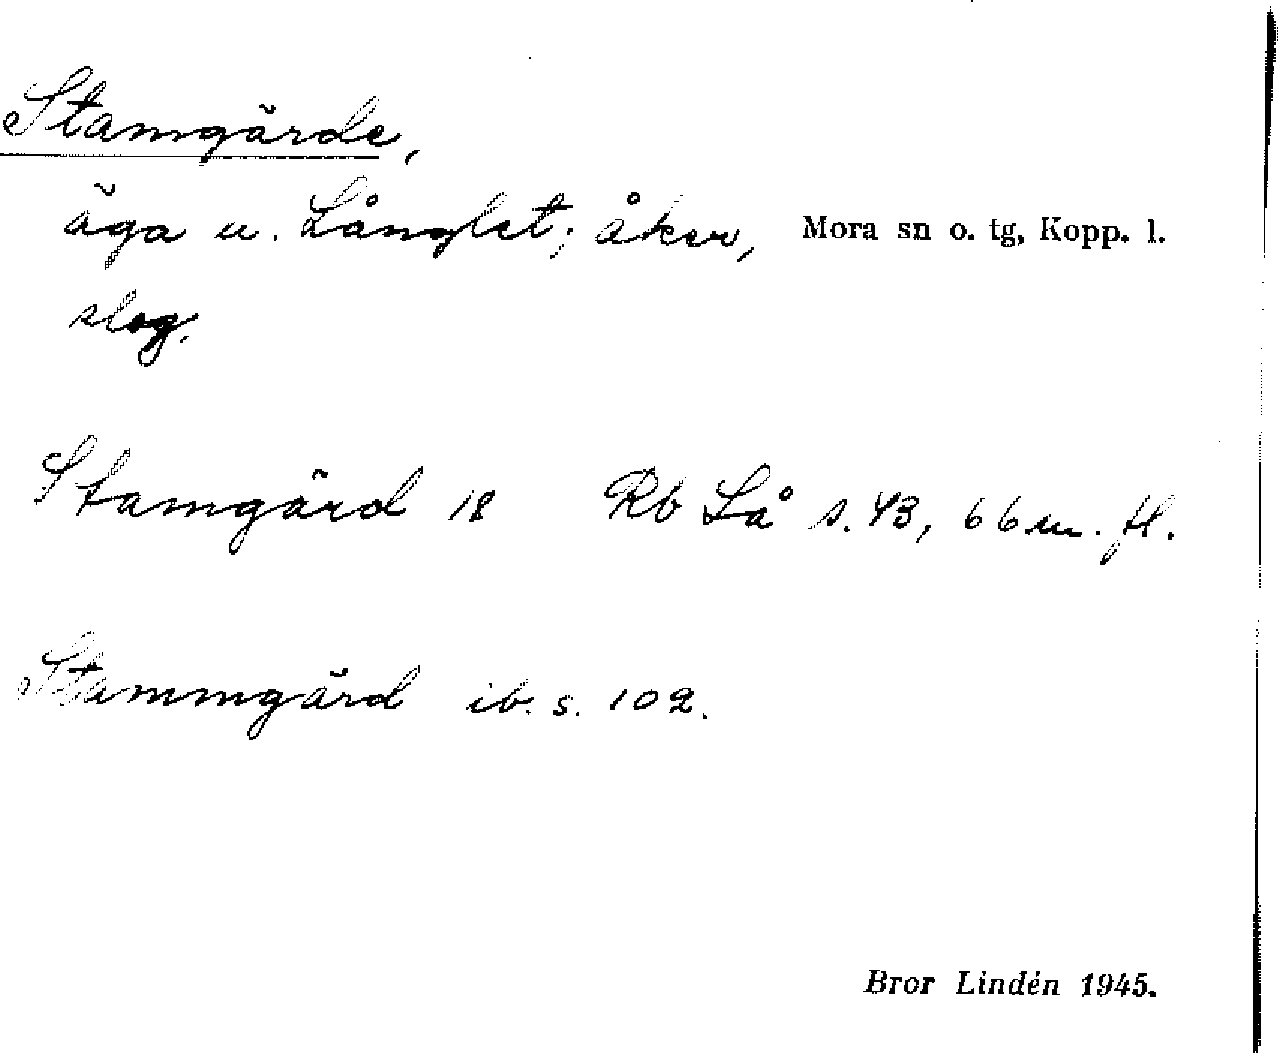 Stamgärde,
äga u. Långlet; åker, Mora sn o. tg, Kopp. l.
slog.
Stamgärd 18 Rb Lå s. 43, 66 m. fl.
Stammgärd ib. s. 102.
Bror Lindén 1945.